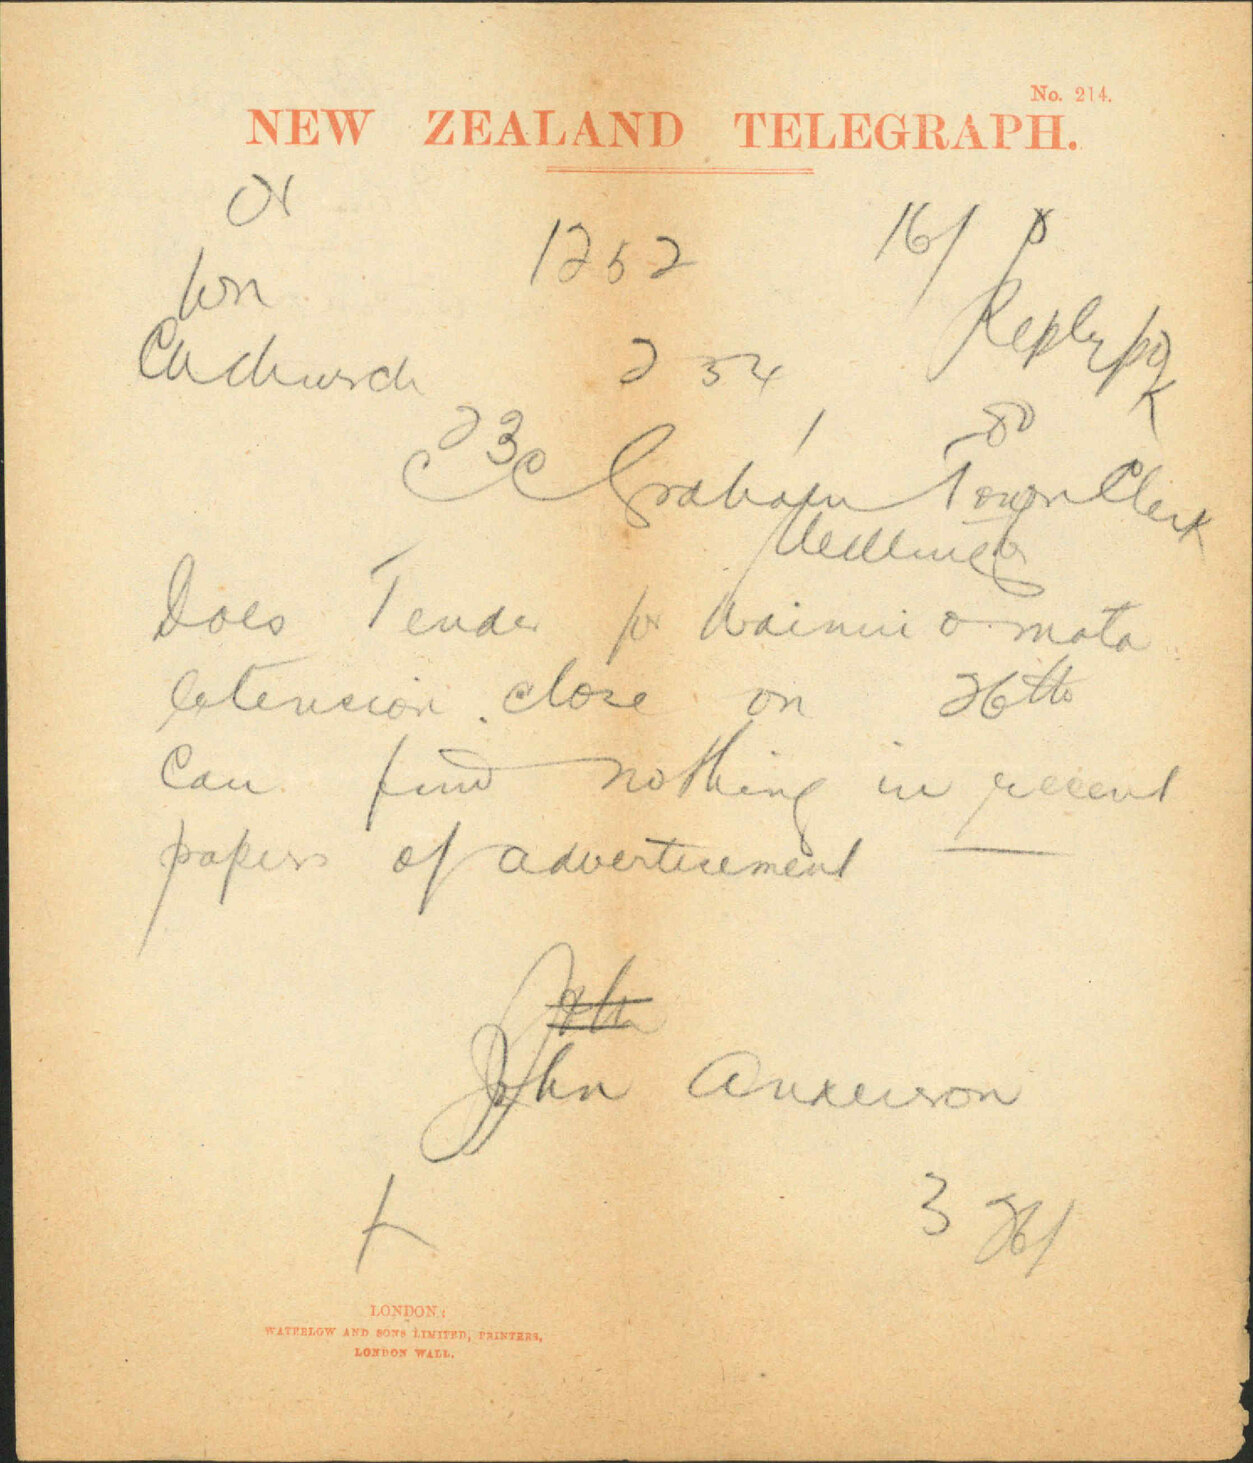 No. 214.
NEW ZEALAND TELEGRAPH.
1252 16/
Wn Reply pd
Chchurch 2 34
23
C C Graham Town Clerk
Wellington
Does Tender for Wainui o mata
extension close on 26th
Can find nothing in recent
papers of advertisement
John
John Anderson
3 26/
LONDON:
WATERLOW AND SONS LIMITED, PRINTERS,
LONDON WALL.